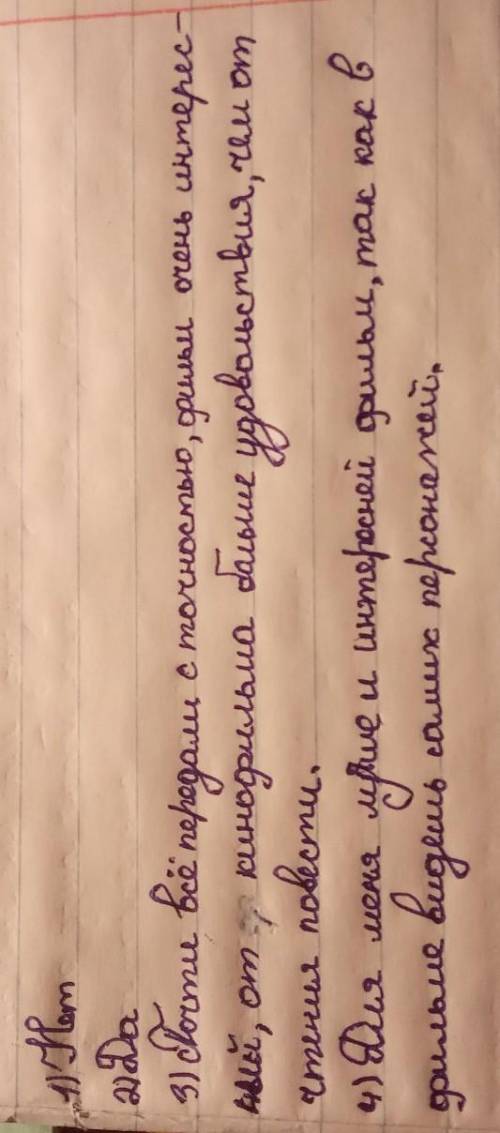 1) Нет
2) Да
3) Почти всё передали с точностью, фильм очень интерес-
ный, от кинофильма больше удовольствия, чем от
чтения повести.
4) Для меня лучше и интересней фильм, так как в
фильме видешь самих персонажей.